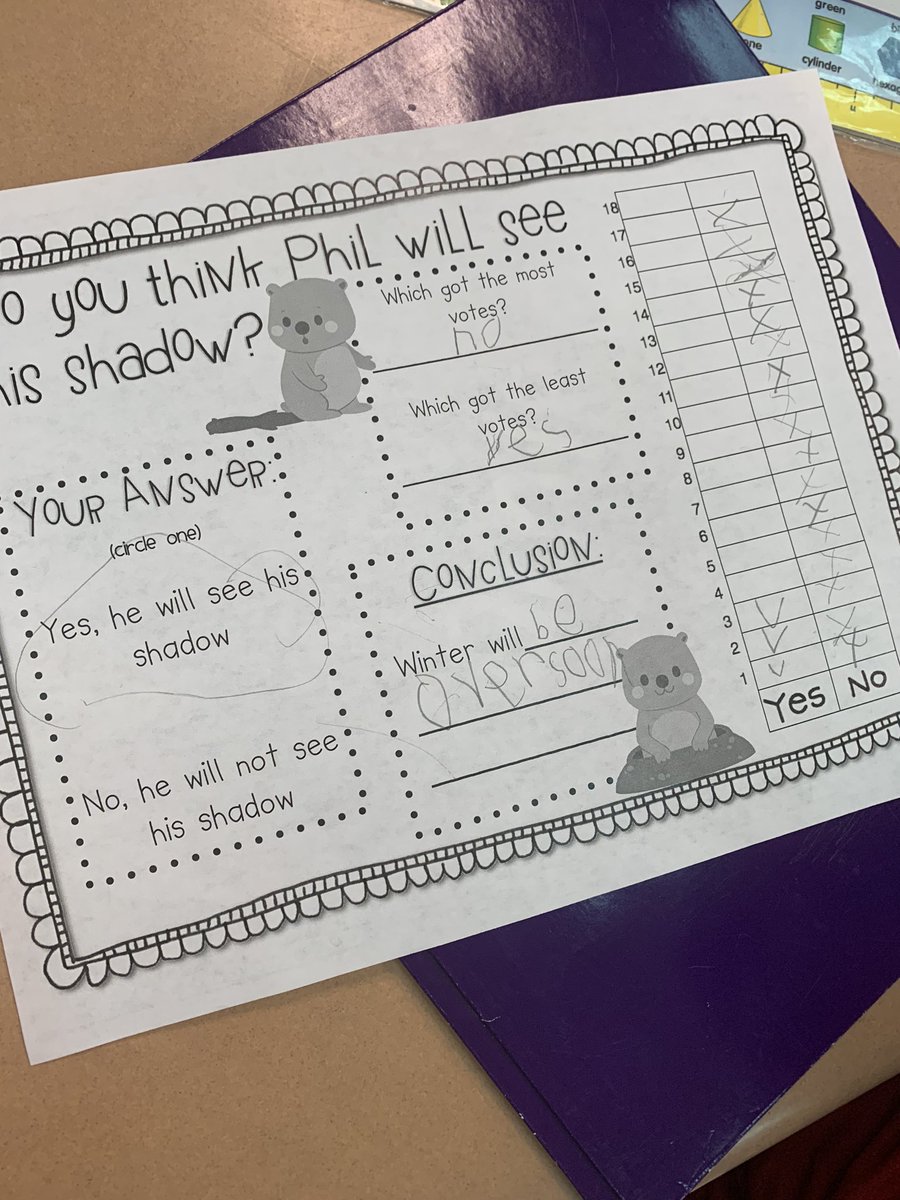 o you think Phil will see
his shadow?
Which got the most
votes?
no
Which got the least
votes?
yes
Your Answer:
(circle one)
Yes, he will see his
shadow
No, he will not see
his shadow
Conclusion:
Winter will be
over soon
18
17
16
15
14
13
12
11
10
9
8
7
6
5
4
3
2
1
Yes No
green
cylinder